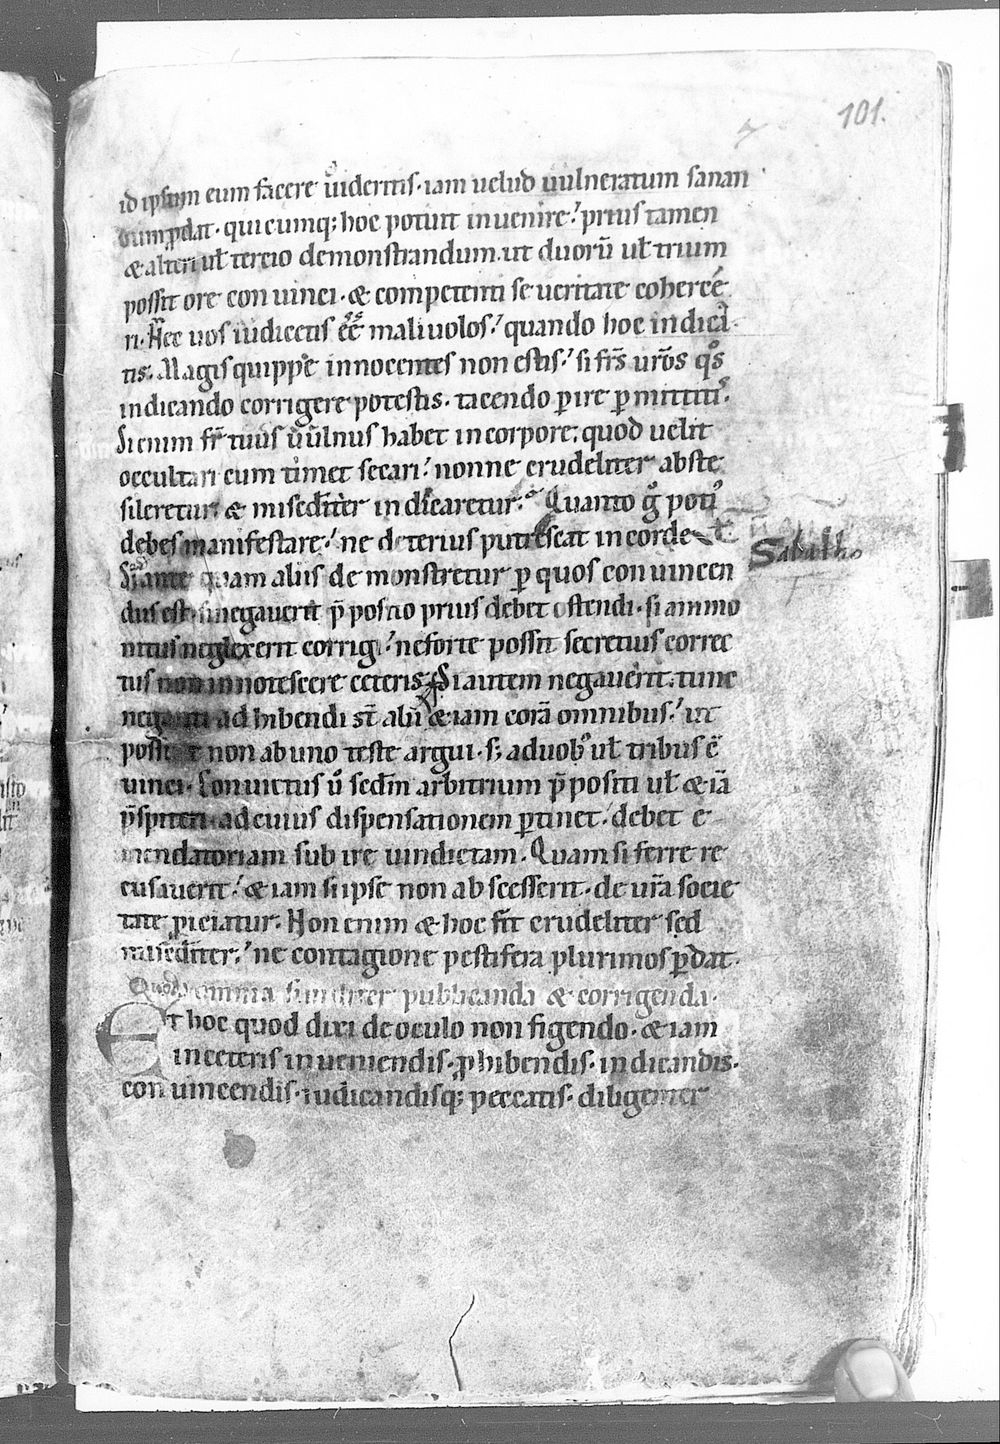 101.
id ipsum eum facere uideritis· iam uelud uulneratum sanan
dum ꝓdat· quicumq; hoc potuit inuenire· prius tamen
& alteri ul̄ tercio demonstrandum· ut duorū ul̄ trium
possit ore conuinci· & competenti seueritate cohercē
ri· Nec uos iudicetis ēē maliuolos· quando hoc indica
tis· Magis quippe innocentes non estis· si fr̄s ur̄os qͦs
indicando corrigere potestis· tacendo ꝑire ꝑmittitis·
Si enim fr̄ tuus uulnus habet in corpore· quod uelit
occultari cum timet secari· nonne crudeliter abs te
sileretur & misēditer indicaretur· Quanto g̊ poti᷒
debes manifestare· ne deterius putrescat in corde
Sabatho
S; ante quam aliis demonstretur ꝑ quos conuincen
dus est· si negauerit p̄posito prius debet ostendi· si ammo
nitus neglexerit corrigi· ne forte possit secretius correc
tus non innotescere ceteris Si autem negauerit· tunc
neganti adhibendi st̄ alii & iam corā omnibus· ut
possit non ab uno teste argui· s; a duob᷒ ul̄ tribus 
uinci· Conuictus u̾ sedm̄ arbitrium p̄positi ul̄ & iā
p̄spiteri ad cuius dispensationem ꝑtinet· debet e
mendatoriam subire uindictam· Quam si ferre re
cusauerit· & iam si ipse non abscesserit· de ur̄a socie
tate ꝓiciatur· Non enim & hoc fit crudeliter sed
misēditer· ne contagione pestifera plurimos ꝑdat·
Quod omnia similiter publicanda & corrigenda·
Et hoc quod dixi de oculo non figendo· & iam
in ceteris inueniendis· ꝓhibendis· indicandis·
conuincendis· iudicandisq; peccatis· diligenter